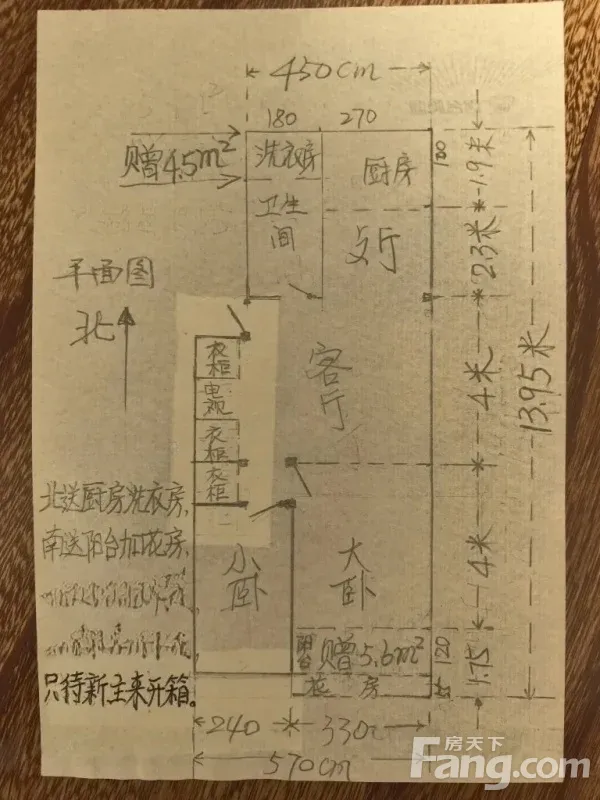 450cm
180
270
赠4.5m²
洗衣房
厨房
卫生间
文厅
平面图
北
客厅
衣柜
电视
衣柜
衣柜
小卧
大卧
阳台
赠5.6m²
花房
120
1.9米
2.3米
4米
4米
1.75
13.95米
北送厨房洗衣房,
南送阳台加花房,
只待新主来开箱。
240
330
570cm
房天下
Fang.com